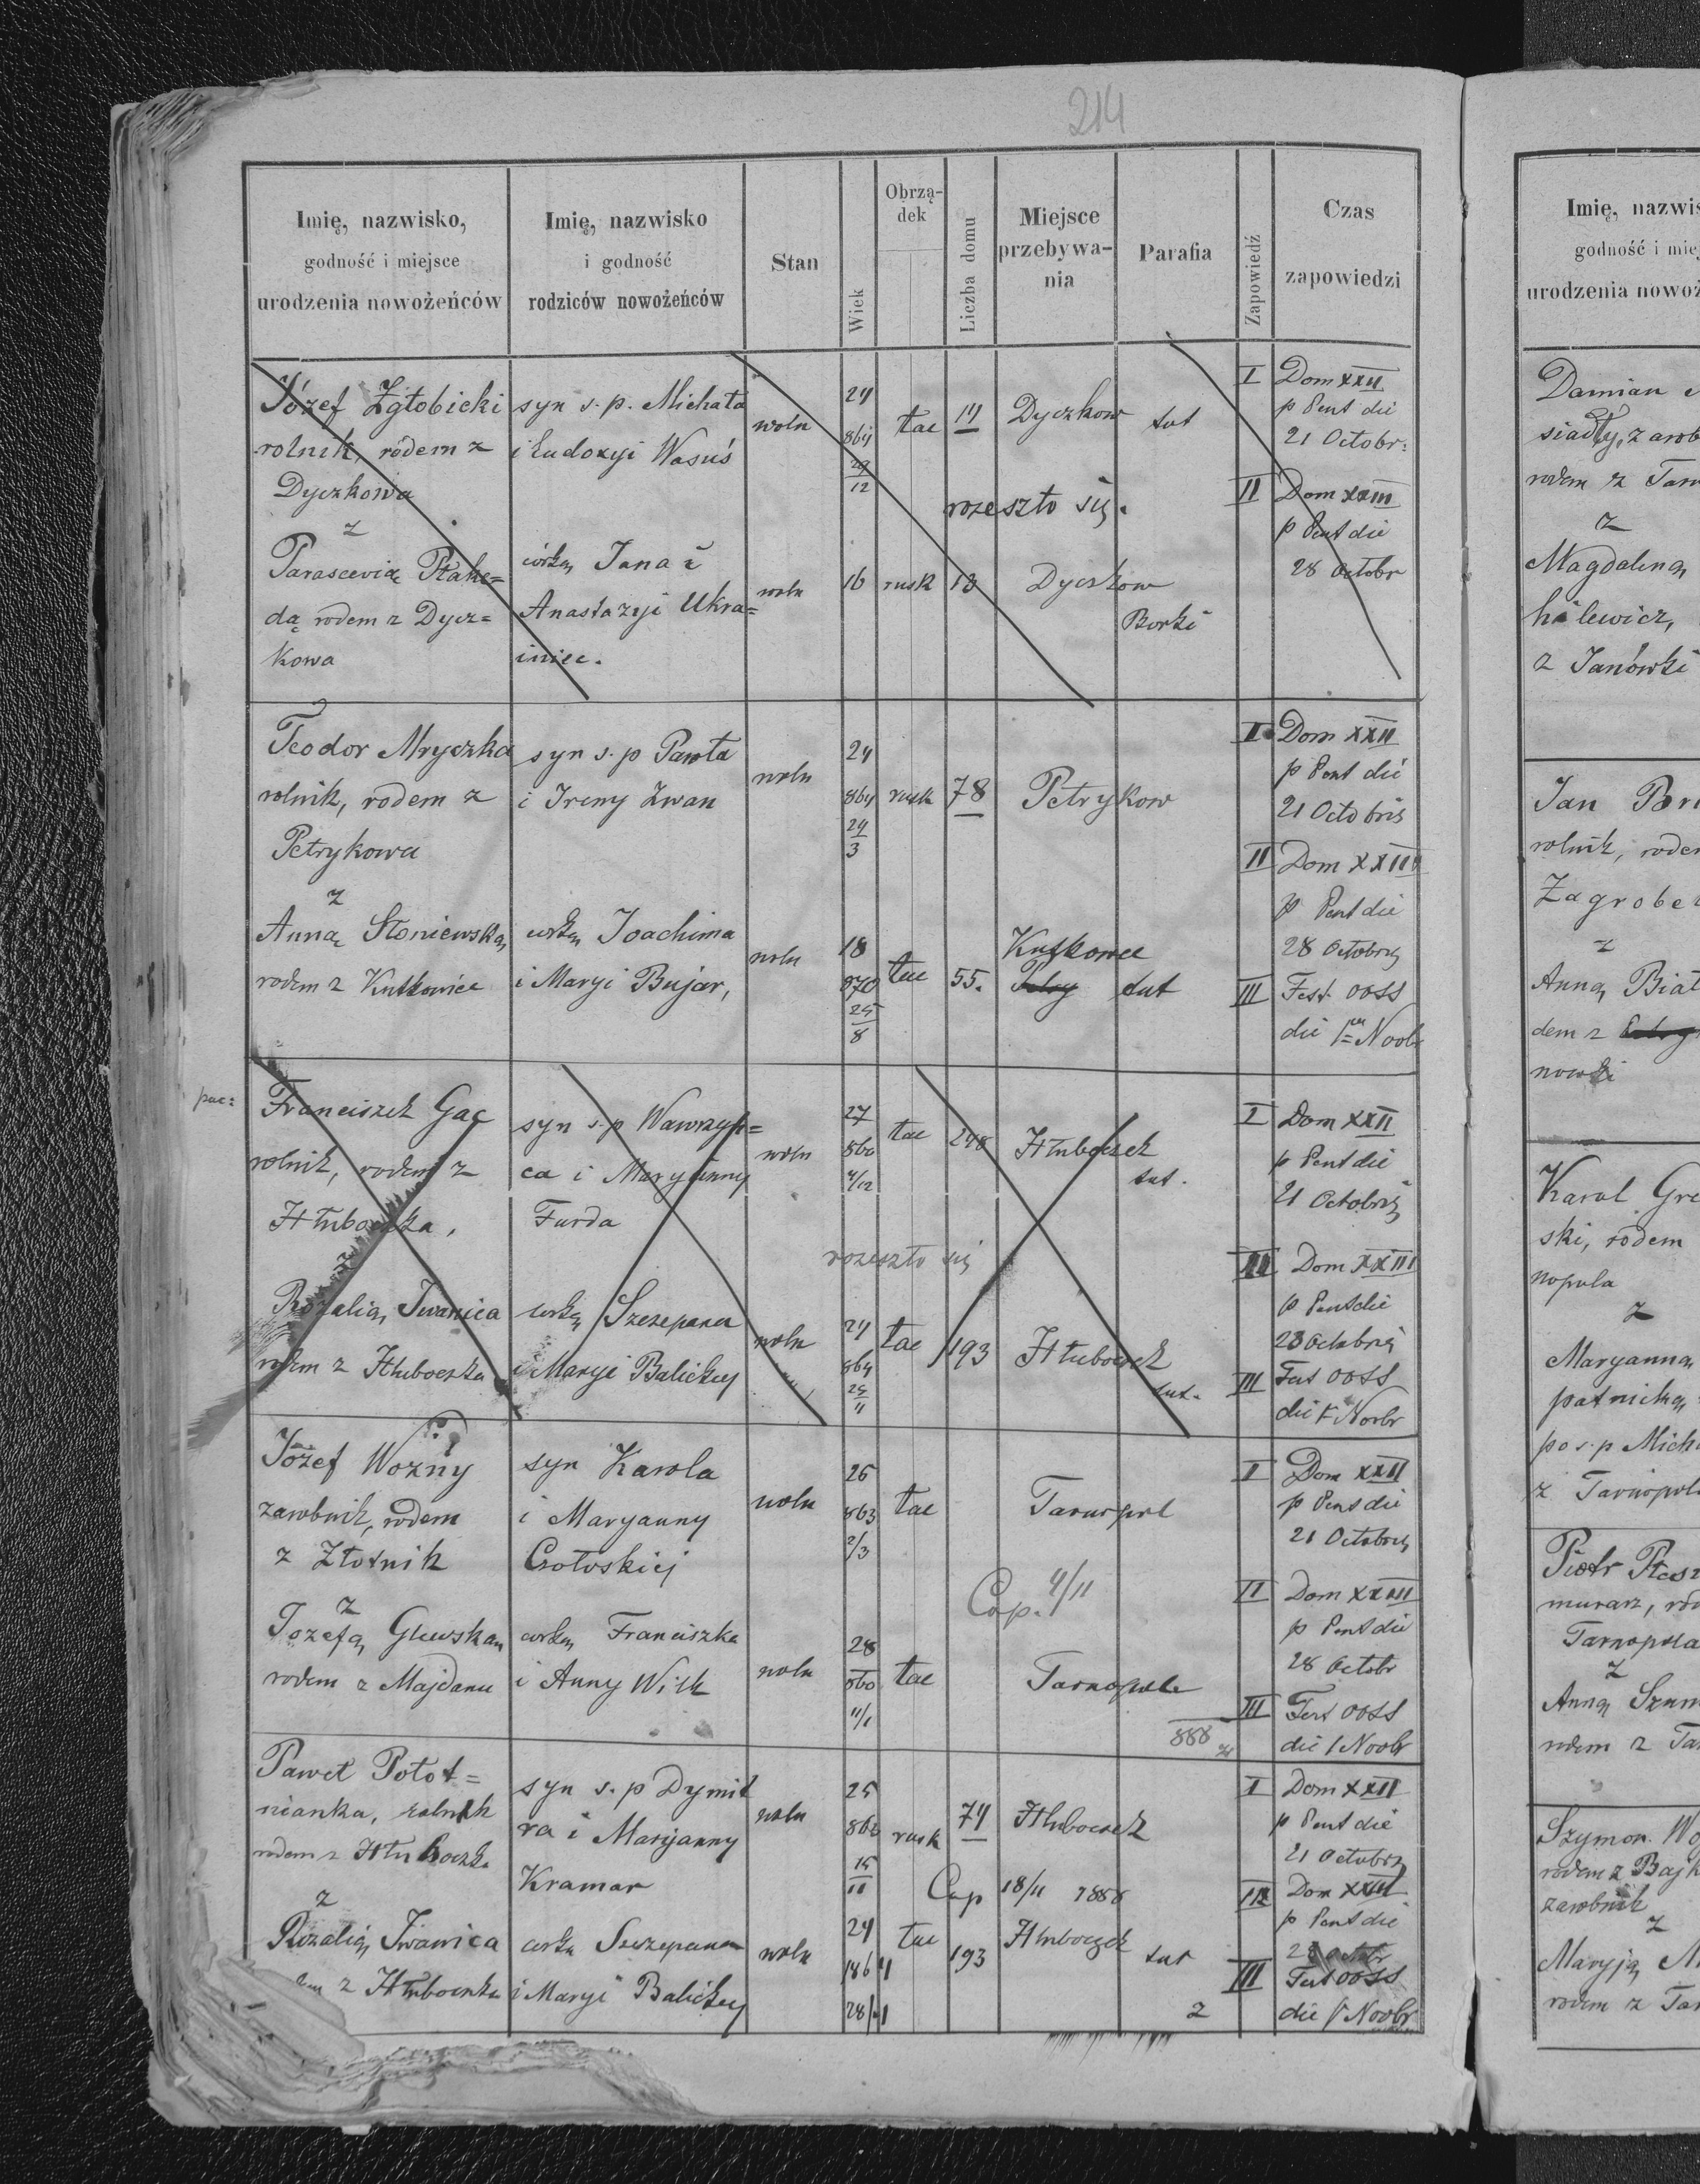 214
Imię, nazwisko,
godność i miejsce
urodzenia nowożeńców
Imię, nazwisko
i godność
rodziców nowożeńców
Stan
Wiek
Obrzą-
dek
Liczba domu
Miejsce
przebywa-
nia
Parafia
Zapowiedź
Czas
zapowiedzi
Józef Zgłobicki
rolnik, rodem z
Dyczkowa
z
Parascevią
dą rodem z Dycz=
kowa
syn s. p. Michała
i Eudoxyi Wasuś
córką Jana i
Anastazyi Ukra=
iniec.
woln
woln
24
864
29
12
16
łac
rusk
18
Dyczkow
rozeszło się.
Dyczkow
Borki
I Dom XXII
p Pent die
21 Octobr:
II Dom XXIII
p Pent die
28 Octobr
Teodor Mryczka
rolnik, rodem z
Petrykowa
z
Anną Słoniewską
rodem z Kutkowiec
syn s. p Pawła
i Ireny Zwan
corką Joachima
i Maryi Bujar,
woln
woln
24
864
29
3
18
870
25
8
rusk
łac
78
55.
Petrykow
Kutkowce
I Dom XXII
p Pent die
21 Octobris
II Dom XXIII
p Pent die
28 Octobris
III Fest OOSS
die 1 Noobr
Franciszek Gac
rolnik, rodem z
Hłuboczka,
Rozalią Iwanica
rodem z Hłuboczka
syn s. p Wawrzyń=
ca i Maryanny
Furda
corką Szczepana
i Maryi Balickiej
woln
woln
27
860
4/12
24
864
25
11
łac
łac
248
193
Hłuboczek
rozeszło się
Hłuboczek
I Dom XXII
p Pent die
21 Octobris
III Dom XXIII
p Pent die
28 Octobris
III Fest OOSS
die 1 Noobr
Józef Woźny
zarobnik, rodem
z Złotnik
z
Józefą
rodem z Majdanu
syn Karola
i Maryanny
corką Franciszka
i Anny Wilk
woln
woln
25
863
2/3
28
860
11/1
łac
łac
Tarnopol
Cop. 4/11
Tarnopol
888
I Dom XXII
p Pent die
21 Octobris
II Dom XXIII
p Pent die
28 Octobr
III Fest OOSS
die 1 Noobr
Paweł Połot=
nianka, rolnik
rodem z Hłuboczka
z
Rozalią Iwanica
z Hłuboczka
syn s. p Dymit
ra i Maryanny
Kramar
corka Szczepana
i Maryi Balickiej
woln
woln
25
15
11
24
1864
rusk
łac
74
193
Hłuboczek
Cop 18/11 1888
Hłuboczek
2
I Dom XXII
p Pent die
21 Octobris
Dom XXIII
p Pent die
28 Octobr
III Fest OOSS
die 1 Noobr
Imię, nazwis
godność i miej
urodzenia nowoż
Damian
rodem z Tar
z
Magdaleną
z Janówki
Jan
rolnik, rodem
z
Anną Biał
Karol Gre
ski, rodem
nopola
z
Maryanną
po s. p Mich
z Tarnopola
Piotr
murarz, ro
Tarnopola
z
Anną
rodem z Ta
Szymon Wo
rodem z
zarobnik
z
Maryją M
rodem z Tar